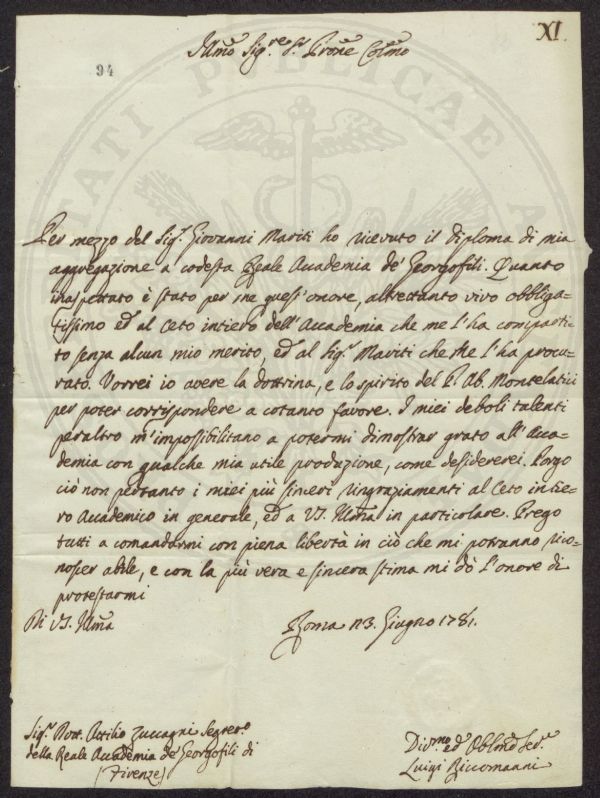 XI.
94
Illmo Sig.re S.r P.rone Col.mo
Per mezzo del Sig.r Giovanni Mariti ho ricevuto il diploma di mia
aggregazione a codesta Reale Accademia de' Georgofili. Quanto
inaspettato è stato per me quest'onore, altrettanto vivo obbliga-
tissimo ed al Ceto intiero dell'Accademia che me l'ha comparti-
to senza alcun mio merito, ed al Sig.r Mariti che me l'ha procu-
rato. Vorrei io avere la dottrina, e lo spirito del P. Ab. Montelatici
per poter corrispondere a cotanto favore. I miei deboli talenti
peraltro m'impossibilitano a potermi dimostrar grato all'Acca-
demia con qualche mia utile produzione, come desidererei. Porgo
ciò non pertanto i miei più sinceri ringraziamenti al Ceto intie-
ro Accademico in generale, ed a VS. Illma in particolare. Prego
tutti a comandarmi con piena libertà in ciò che mi potranno rico-
noscer abile, e con la più vera e sincera stima mi dò l'onore di
protestarmi
Di VS. Illma
Roma 13. Giugno 1781.
Sig.r Dott. Attilio Zuccagni Segret.o
della Reale Accademia de' Georgofili di
(Firenze)
Div.mo ed Obb.mo Ser.e
Luigi Riccomanni
TATI PUBLICAE